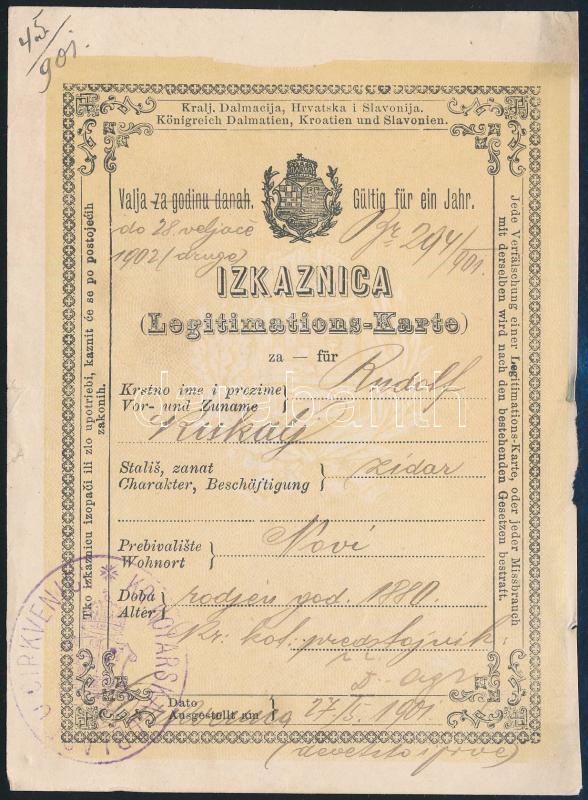 45/901.
Kralj. Dalmacija, Hrvatska i Slavonija.
Königreich Dalmatien, Kroatien und Slavonien.
Valja za godinu danah. Gültig für ein Jahr.
do 28 veljače
1902 (druge)
Br 204/901.
IZKAZNICA
(Legitimations-Karte)
za — für
Krstno ime i prezime
Vor- und Zuname
Rudolf
Kiskalj
Stališ, zanat
Charakter, Beschäftigung
zidar
Prebivalište
Wohnort
Novi
Doba
Alter
rodjen god. 1880.
Kr. kot. predstojnik:
Dato
Ausgestellt am
27/5. 1901
(devetsto i prve)
Tko izkaznicu izopači ili zlo upotriebi, kaznit će se po postojećih
zakonih.
Jede Verfälschung einer Legitimations-Karte, oder jeder Missbrauch
mit derselben wird nach den bestehenden Gesetzen bestraft.
darabanth